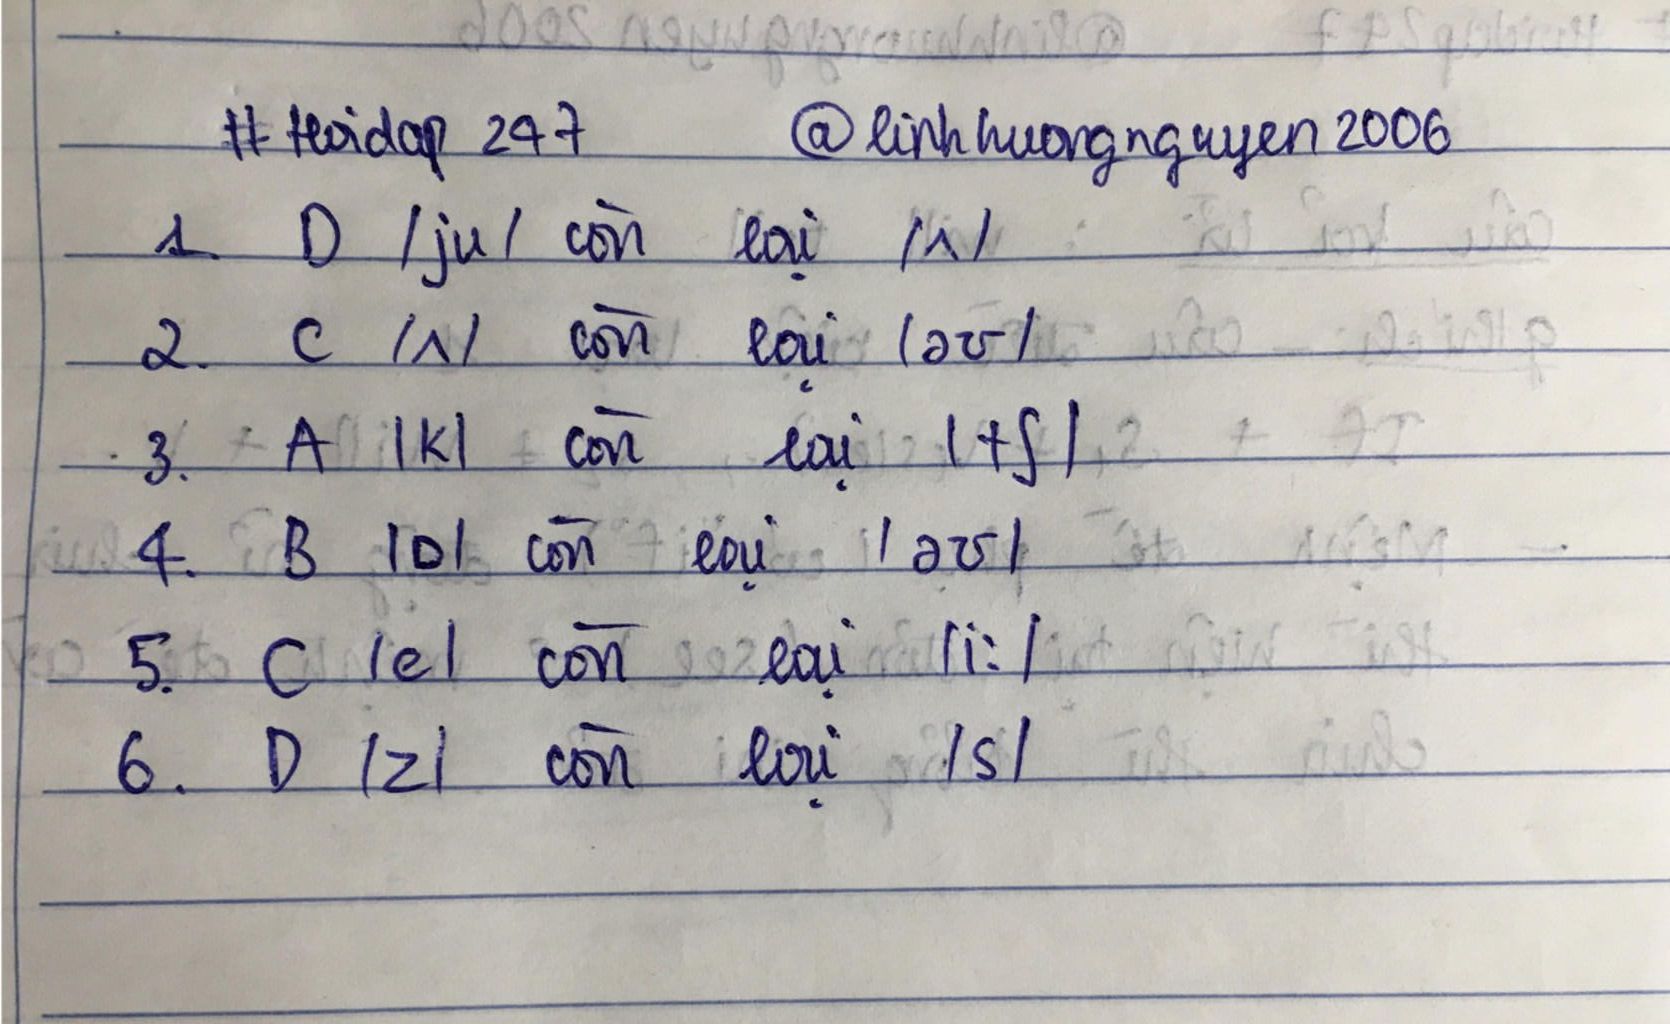 # Hoidap 247 @linhhuongnguyen2006
1. D /ju/ còn lại /ʌ/
2. C /ʌ/ còn lại /əʊ/
3. A /k/ còn lại /tʃ/
4. B /ɒ/ còn lại /əʊ/
5. C /e/ còn lại /i:/
6. D /z/ còn lại /s/